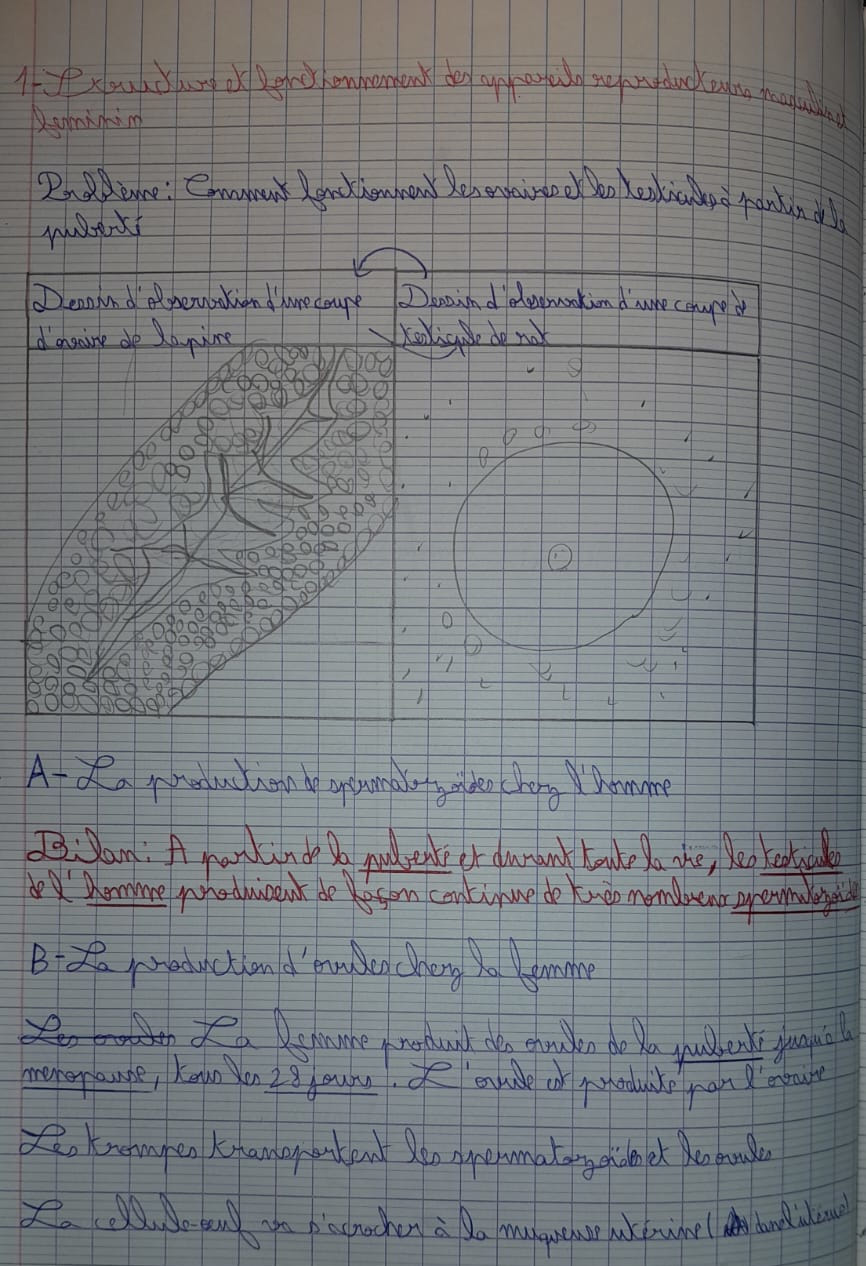 1- Structure et fonctionnement des appareils reproducteurs masculin et
feminin
Problème: Comment fonctionnent les ovaires et les testicules à partir de la
puberté
Dessin d'observation d'une coupe
d'ovaire de lapine
Dessin d'observation d'une coupe de
testicule de rat
A- La production de spermatozoïdes chez l'homme
Bilan: A partir de la puberté et durant toute la vie, les testicules
de l'homme produisent de façon continue de très nombreux spermatozoïdes
B- La production d'ovules chez la femme
Les ovules La femme produit des ovules de la puberté jusqu'à la
menopause, tous les 28 jours. L'ovule est produite par l'ovaire
Les trompes transportent les spermatozoïdes et les ovules
La cellule-oeuf va s'acrocher à la muqueuse utérine (